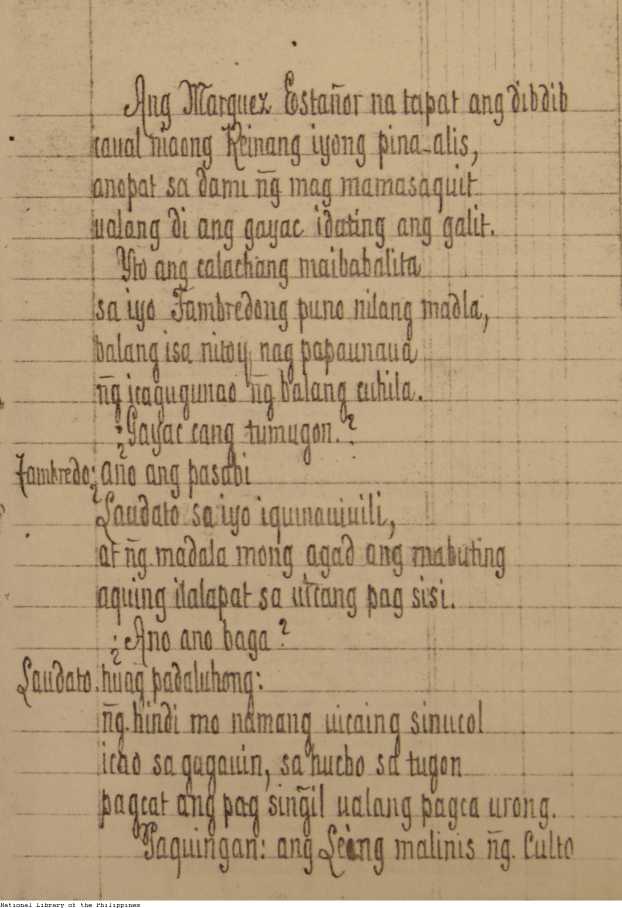 Ang Marquez Estañor na tapat ang dibdib
caual niaong Reinang iyong pina-alis,
anopat sa dami ñg mag mamasaquit
ualang di ang gayac idating ang galit.
Yto ang calachang maibabalita
sa iyo Tambredong puno nilang madla,
balang isa nitoy nag papaunaua
ñg icagugunao ñg balang cuhila.
¿Gayac cang tumugon.?
Tambredo; ano ang pasabi
¿Laudato sa iyo iquinauiuili,
at ñg madala mong agad ang mabuting
aquing ilalapat sa utcang pag sisi.
¿Ano ano baga?
Laudato. huag padaluhong:
ñg hindi mo namang uicaing sinucol
icao sa gagauin, sa hucbo sa tugon
pagcat ang pag siñgil ualang pagca urong.
Paquingan: ang Leing malinis ñg. Culto
National Library of the Philippines